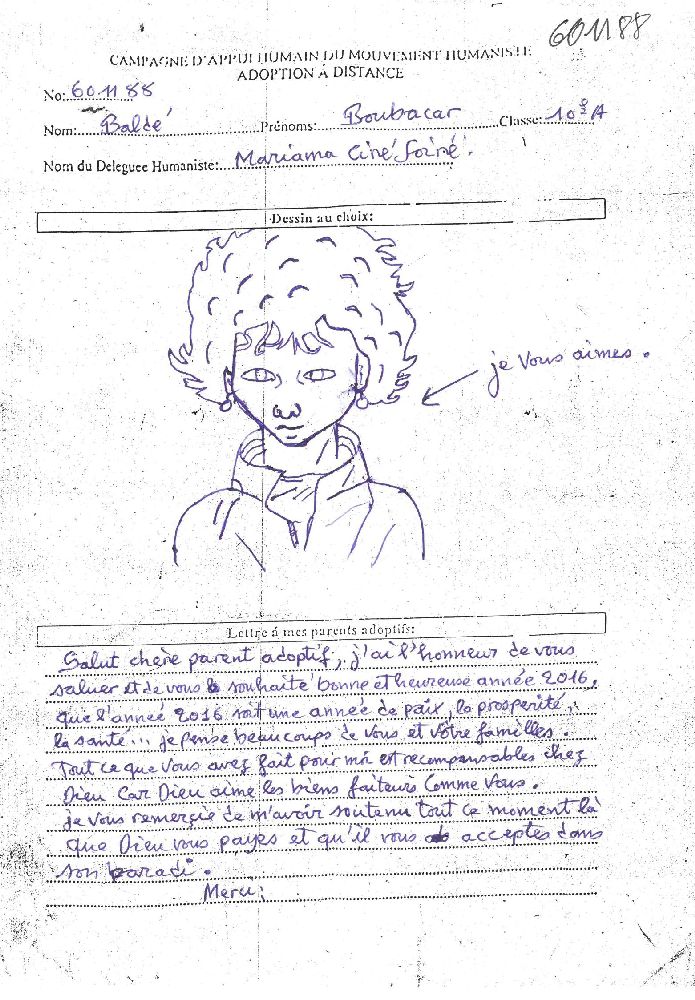 601188
CAMPAGNE D'APPUI HUMAIN DU MOUVEMENT HUMANISTE
ADOPTION À DISTANCE
No: 601188
Nom: Baldé Prénoms: Boubacar Classe: 10è A
Nom du Deleguee Humaniste: Mariama Ciré
Dessin au choix:
je Vous aimes.
Lettre á mes parents adoptifs:
Salut chère parent adoptif, j'ai l'honneur de vous
saluer et de vous souhaité bonne et heureuse année 2016,
que l'année 2016 soit une année de paix, la prosperité,
la santé... je pense beaucoups de vous et vôtre familles.
Tout ce que vous avez fait pour moi est recompensables chez
Dieu Car Dieu aime les biens faiteurs Comme Vous.
je vous remerçie de m'avoir soutenu tout ce moment là
que Dieu vous payes et qu'il vous acceptes dans
son paradi.
Merci.